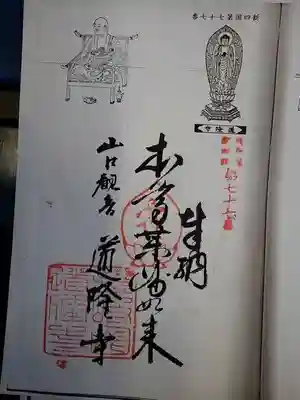 新四国第七十七番
道隆寺
第七十七番
奉納
本尊薬師如来
山口観音
道隆寺